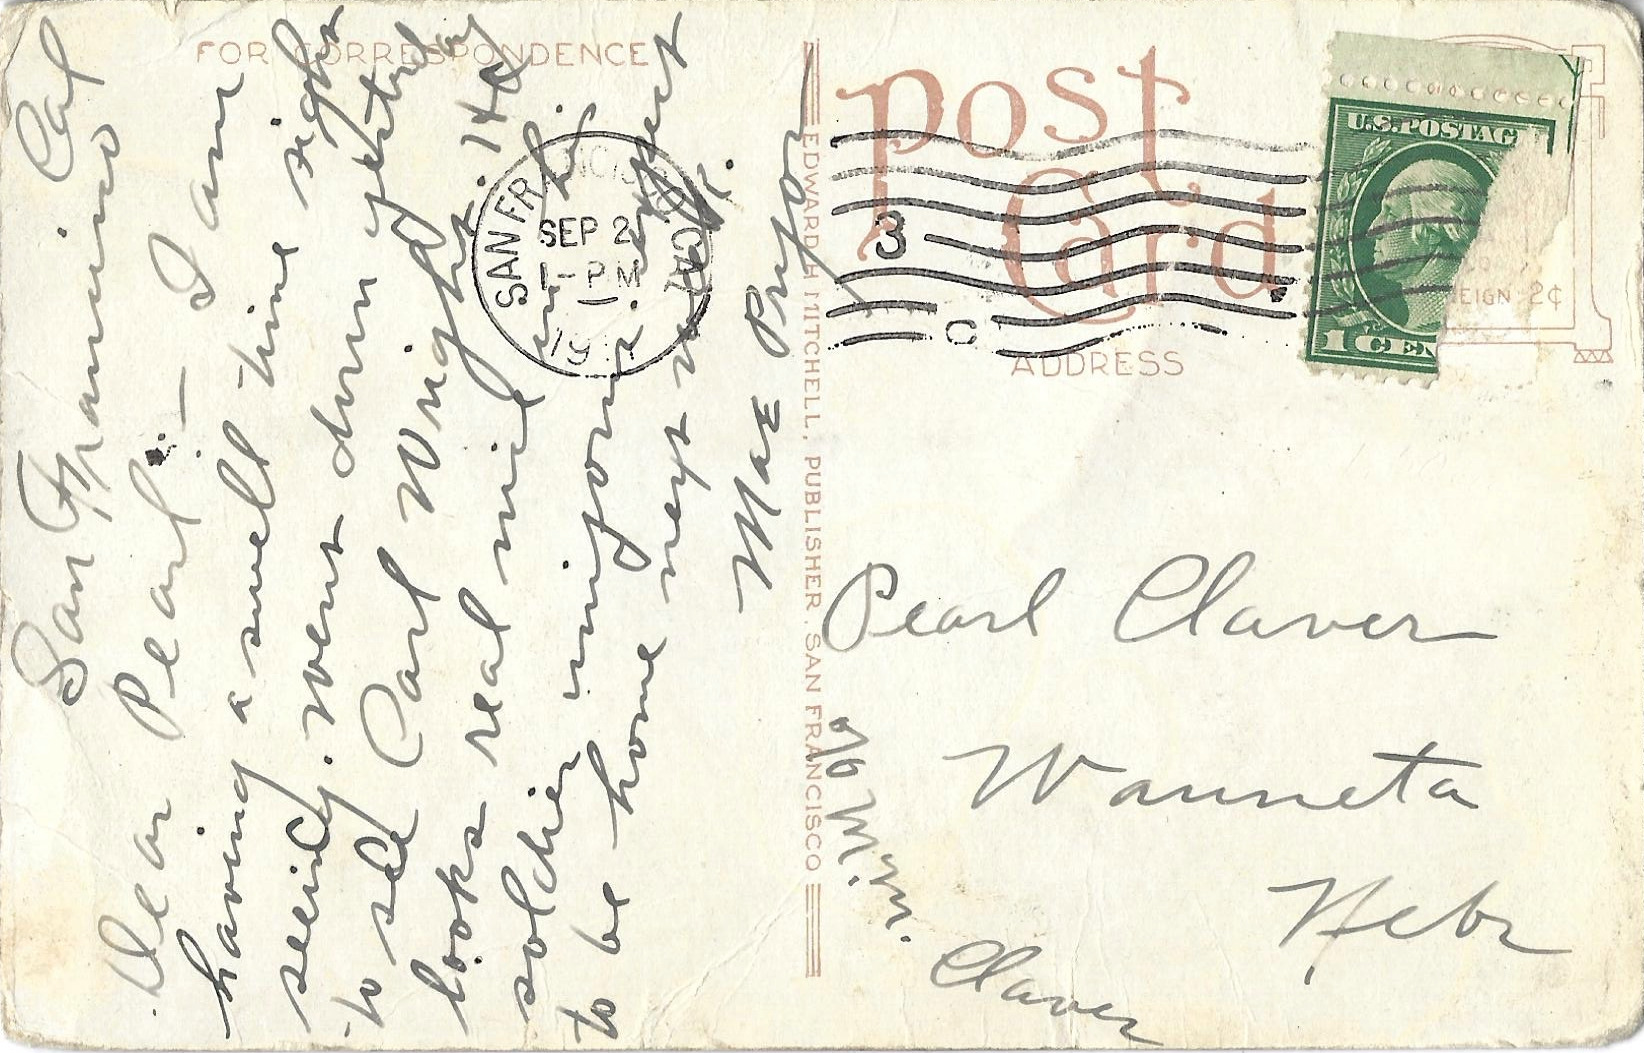 FOR CORRESPONDENCE
San Francisco Cal
Dear Pearl:— I am
having a swell time sight
seeing. Went down yesterday
to see Carl Wright. He
looks real nice in his
soldier uniform. expect
to be home next week.
Mae Pryor
SAN FRANCISCO CAL
SEP 2
1-PM
19
EDWARD H MITCHELL, PUBLISHER, SAN FRANCISCO
Post
Card
3
C
U.S. POSTAG
1 CEN
EIGN 2¢
ADDRESS
Pearl Claver
Wauneta
Nebr
Claver